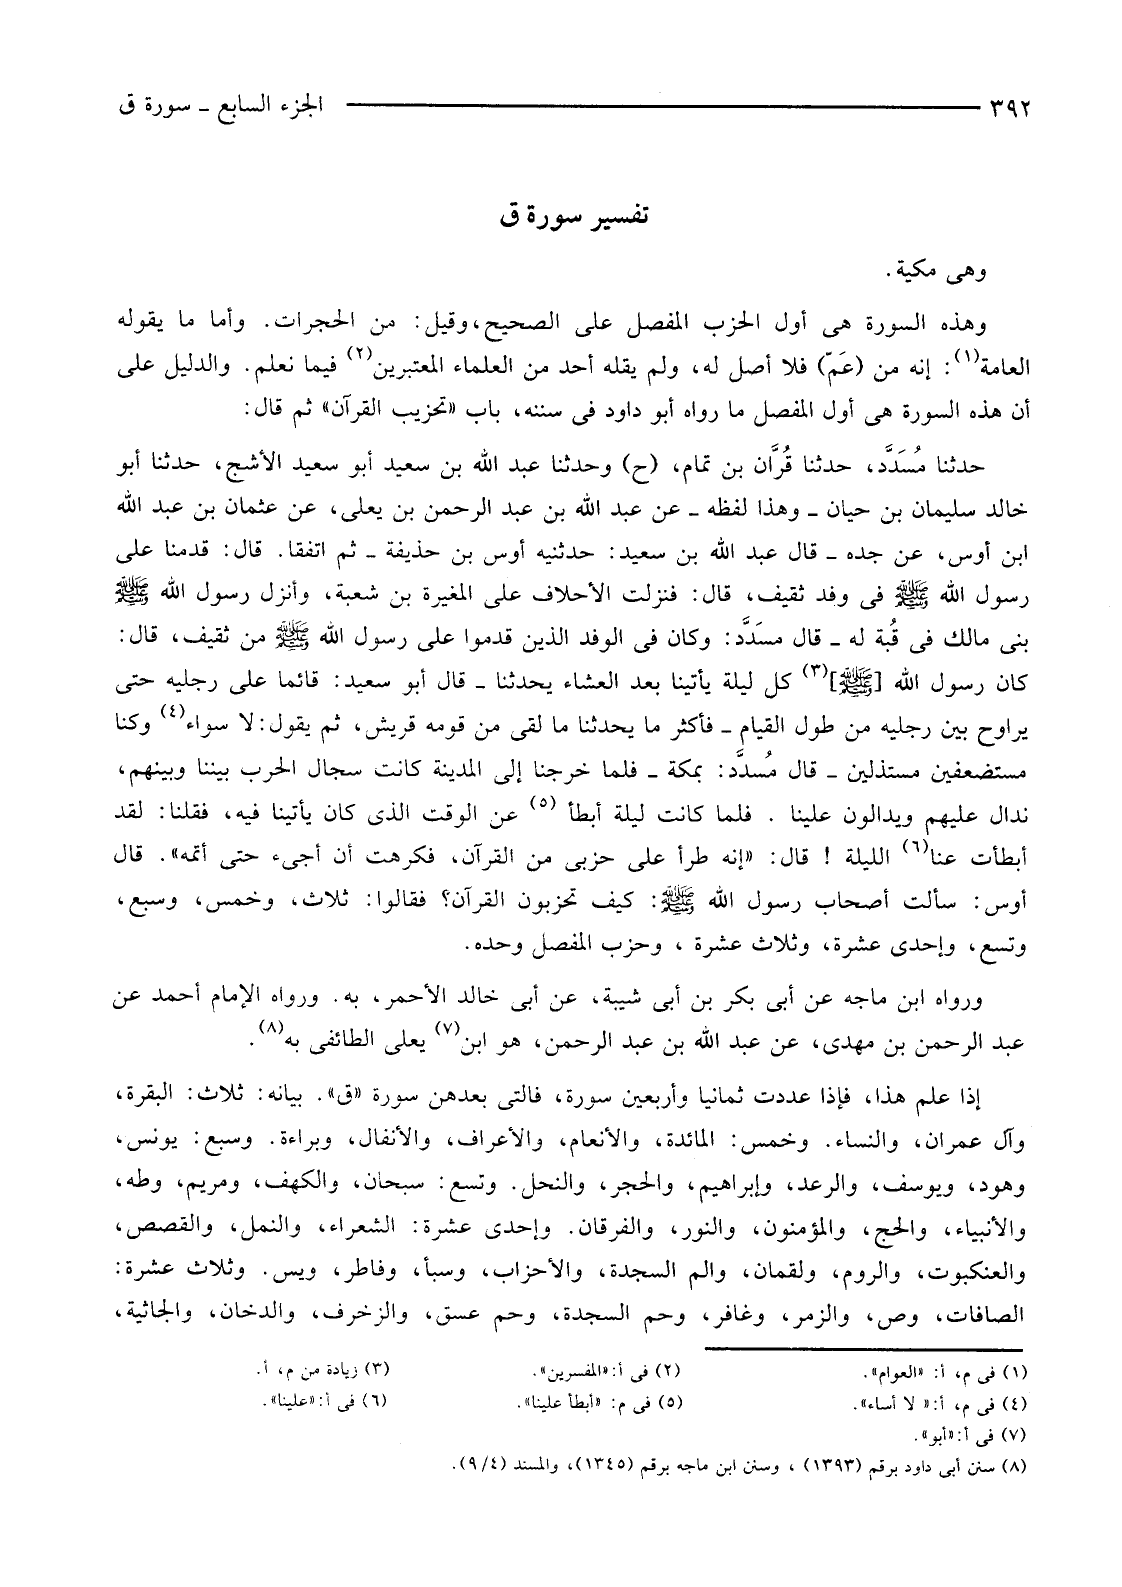 ٣٩٢ الجزء السابع ـ سورة ق
تفسير سورة ق
وهى مكية.
وهذه السورة هى أول الحزب المفصل على الصحيح،وقيل: من الحجرات. وأما ما يقوله
العامة(١): إنه من (عَمّ) فلا أصل له، ولم يقله أحد من العلماء المعتبرين(٢) فيما نعلم. والدليل على
أن هذه السورة هى أول المفصل ما رواه أبو داود فى سننه، باب «تحزيب القرآن» ثم قال:
حدثنا مُسَدَّد، حدثنا قُرَّان بن تمام، (ح) وحدثنا عبد الله بن سعيد أبو سعيد الأشج، حدثنا أبو
خالد سليمان بن حيان ـ وهذا لفظه ـ عن عبد الله بن عبد الرحمن بن يعلى، عن عثمان بن عبد الله
ابن أوس، عن جده ـ قال عبد الله بن سعيد: حدثنيه أوس بن حذيفة ـ ثم اتفقا. قال: قدمنا على
رسول الله ﷺ فى وفد ثقيف، قال: فنزلت الأحلاف على المغيرة بن شعبة، وأنزل رسول الله ﷺ
بنى مالك فى قُبة له ـ قال مسَدَّد: وكان فى الوفد الذين قدموا على رسول الله ﷺ من ثقيف، قال:
كان رسول الله [ﷺ](٣) كل ليلة يأتينا بعد العشاء يحدثنا ـ قال أبو سعيد: قائما على رجليه حتى
يراوح بين رجليه من طول القيام ـ فأكثر ما يحدثنا ما لقى من قومه قريش، ثم يقول:لا سواء(٤) وكنا
مستضعفين مستذلين ـ قال مُسدَّد: بمكة ـ فلما خرجنا إلى المدينة كانت سجال الحرب بيننا وبينهم،
ندال عليهم ويدالون علينا . فلما كانت ليلة أبطأ (٥) عن الوقت الذى كان يأتينا فيه، فقلنا: لقد
أبطأت عنا(٦) الليلة ! قال: «إنه طرأ على حزبى من القرآن، فكرهت أن أجىء حتى أتمه». قال
أوس: سألت أصحاب رسول الله ﷺ: كيف تحزبون القرآن؟ فقالوا: ثلاث، وخمس، وسبع،
وتسع، وإحدى عشرة، وثلاث عشرة ، وحزب المفصل وحده.
ورواه ابن ماجه عن أبى بكر بن أبى شيبة، عن أبى خالد الأحمر، به. ورواه الإمام أحمد عن
عبد الرحمن بن مهدى، عن عبد الله بن عبد الرحمن، هو ابن(٧) يعلى الطائفى به(٨).
إذا علم هذا، فإذا عددت ثمانيا وأربعين سورة، فالتى بعدهن سورة «ق». بيانه: ثلاث: البقرة،
وآل عمران، والنساء. وخمس: المائدة، والأنعام، والأعراف، والأنفال، وبراءة. وسبع: يونس،
وهود، ويوسف، والرعد، وإبراهيم، والحجر، والنحل. وتسع: سبحان، والكهف، ومريم، وطه،
والأنبياء، والحج، والمؤمنون، والنور، والفرقان. وإحدى عشرة: الشعراء، والنمل، والقصص،
والعنكبوت، والروم، ولقمان، والم السجدة، والأحزاب، وسبأ، وفاطر، ويس. وثلاث عشرة:
الصافات، وص، والزمر، وغافر، وحم السجدة، وحم عسق، والزخرف، والدخان، والجاثية،
(١) فى م، أ: «العوام». (٢) فى أ:«المفسرين». (٣) زيادة من م، أ.
(٤) فى م، أ:« لا أساء». (٥) فى م: «أبطأ علينا». (٦) فى أ:«علينا».
(٧) فى أ:«أبو».
(٨) سنن أبى داود برقم (١٣٩٣) ، وسنن ابن ماجه برقم (١٣٤٥)، والمسند (٩/٤).